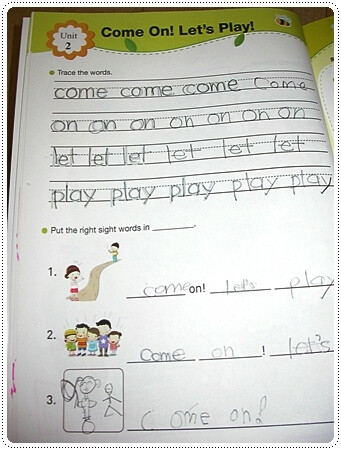 Unit
2
Come On! Let's Play!
Trace the words.
come come come come
on on on on on on on
let let let let let let
play play play play play
Put the right sight words in ________.
1. come on! Let's play
2. come on ! let's
3. come on!